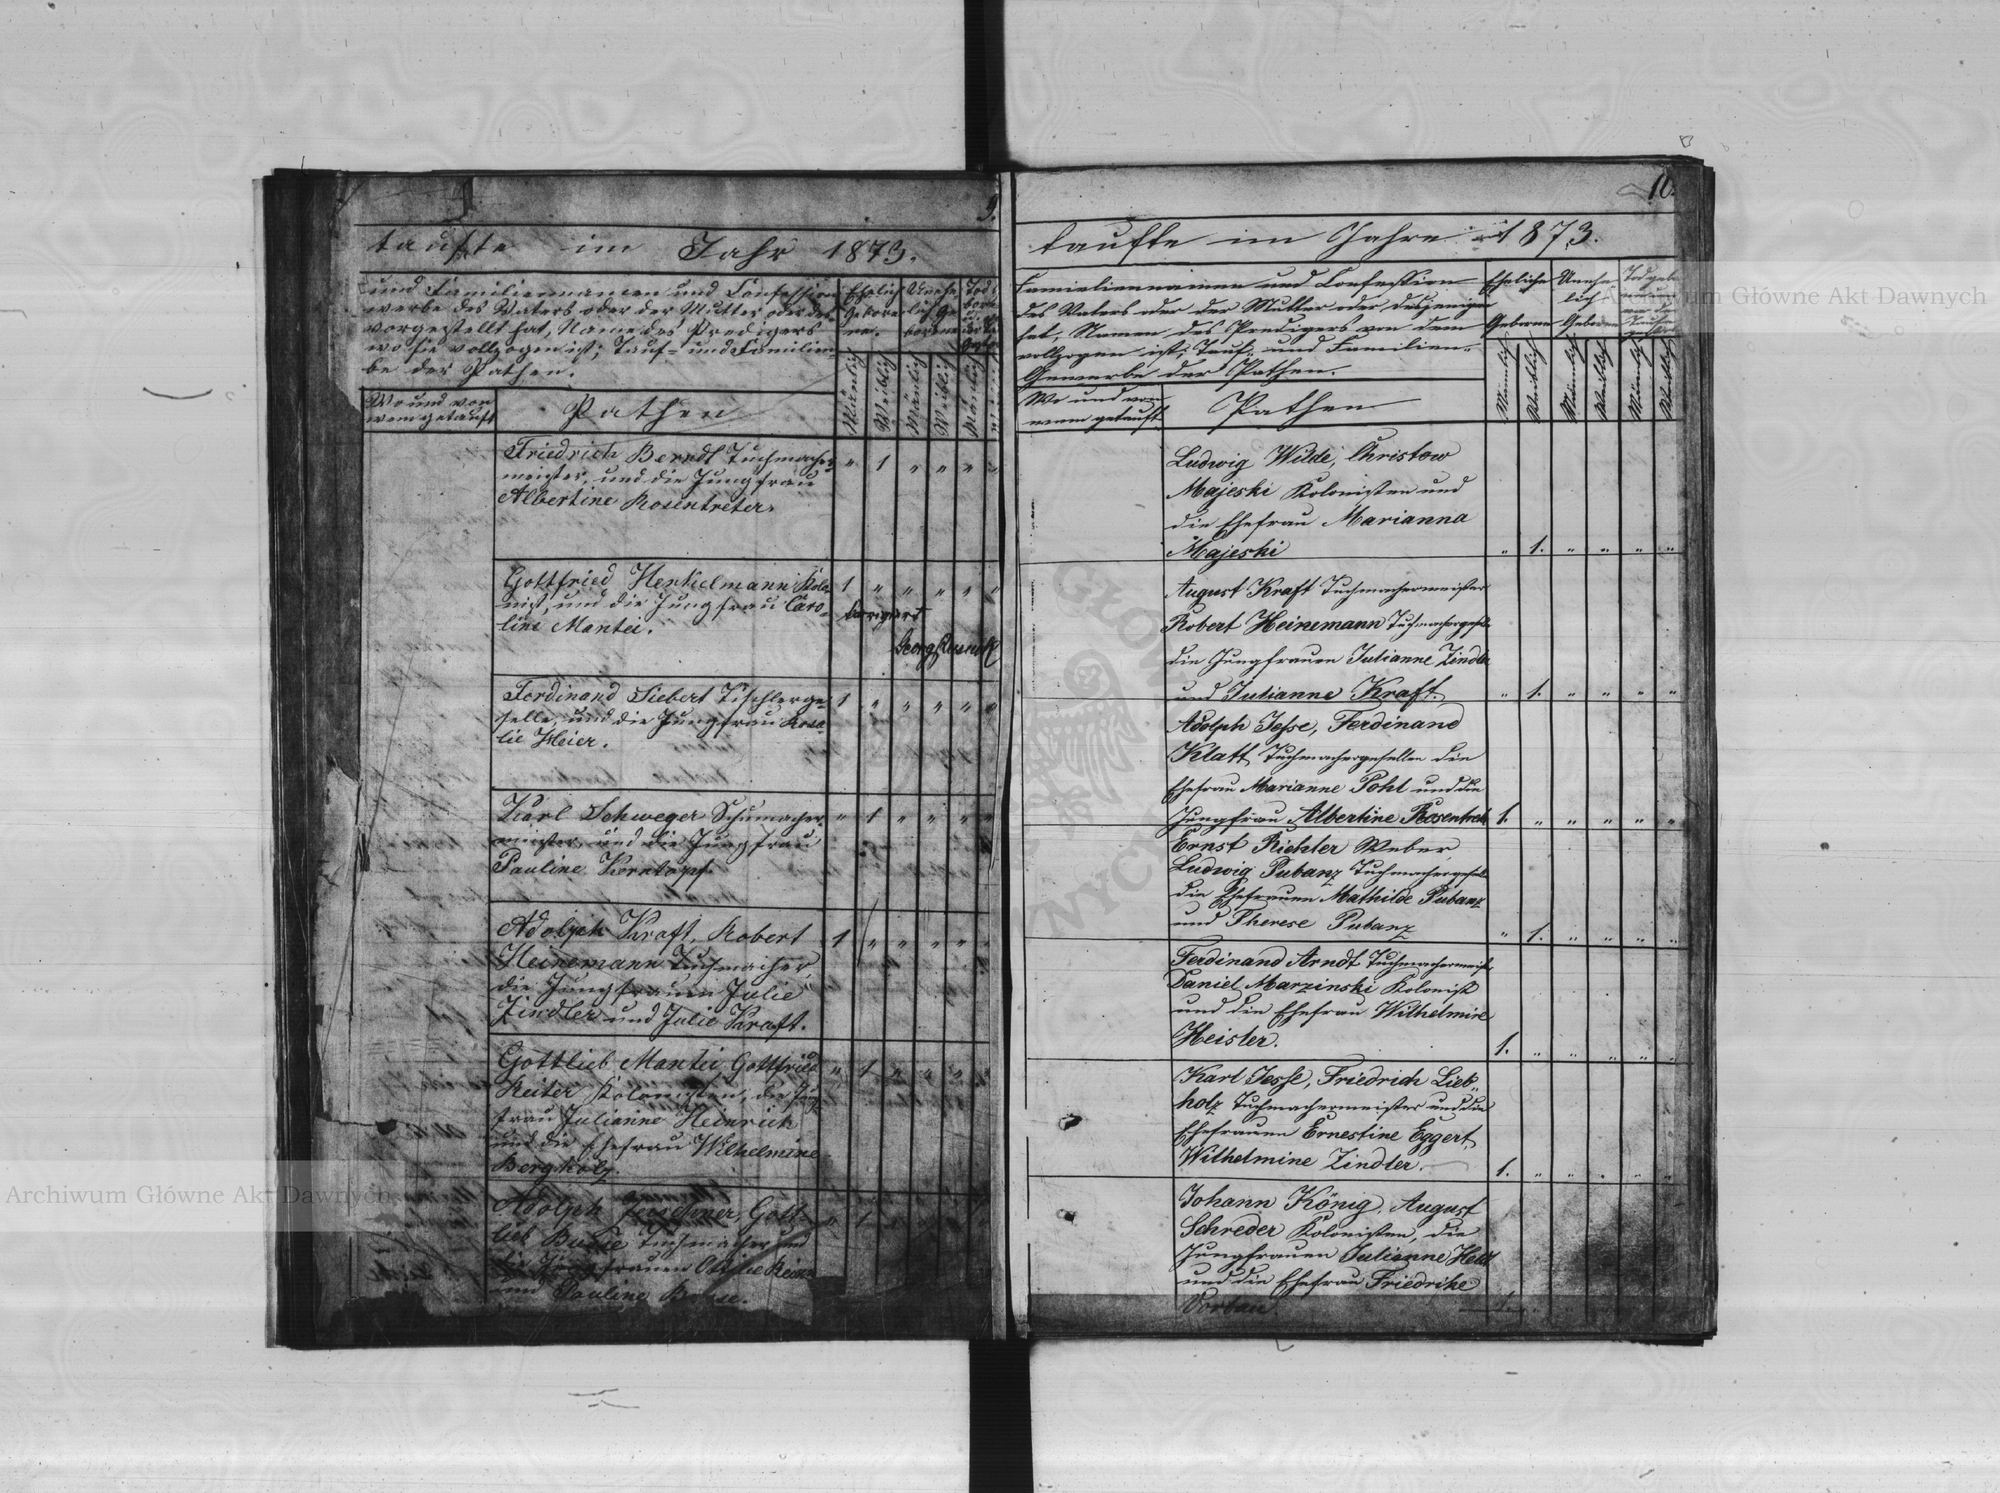 9.
taufte im Jahr 1873.
und Familiennamen und Confession
werbe des Vaters oder der Mutter oder des
vorgestellt hat, Name des Predigers
wo sie vollzogen ist; Tauf= und Familien=
be der Pathen.
Ehelich
Gebore
ne.
Unehe
lich Ge
borene
Wo und von
wem getauft
Pathen
Männlich
Weiblich
Männlich
Weiblich
Männlich
Friedrich Berndt Tuchmacher
meister, und die Jungfrau
Albertine Rosentreter.
" 1 " " " "
Gottfried Henkelmann Kolo=
nist, und die Jungfrau Caro=
line Mantei.
1 " " " " "
Corrigiert
Georg
Ferdinand Siebert Tischlerge=
selle, und die Jungfrau Rosa=
lie Heier.
1 " " " " "
Karl Schweger Schumacher=
meister, und die Jungfrau
Pauline Korntopf.
" 1 " " " "
Adolph Kraft, Robert
Heinemann Tuchmacher,
die Jungfrauen Julie
Zindler und Julie Kraft.
1 " " " " "
Gottlieb Mantei, Gottfried
Reiter Kolonisten, die Jung=
frau Julianne Heinrich
und die Ehefrau Wilhelmine
Bergholz.
" 1 " " " "
Adolph Gott=
lieb Tuchmacher und
die Jungfrauen Ottilie
und Pauline
" 1
10.
taufte im Jahre 1873.
Familiennamen und Confession
des Vaters oder der Mutter oder desjenigen
hat, Namen des Predigers von dem
vollzogen ist; Tauf= und Familien=
Gewerbe der Pathen.
Eheliche
Geborne
Unehe
lich
Geborne
Wo und von
wem getauft
Pathen
Männlich
Weiblich
Männlich
Weiblich
Männlich
Weiblich
Ludwig Wilde, Christow
Majeski Kolonisten und
die Ehefrau Marianna
Majeski
" 1. " " " "
August Kraft Tuchmachermeister
Robert Heinemann Tuchmachergesell
die Jungfrauen Julianne Zindler
und Julianne Kraft.
" 1. " " " "
Adolph Jesse, Ferdinand
Klatt Tuchmachergesellen die
Ehefrau Marianne Pohl und die
Jungfrau Albertine Rosentreter
1. " " " " "
Ernst Richter Weber,
Ludwig Pubanz Tuchmachergesell
die Ehefrauen Mathilde Pubanz
und Therese Pubanz
" 1. " " " "
Ferdinand Arndt Tuchmachermeist.
Daniel Marzinski Kolonist
und die Ehefrau Wilhelmine
Heister.
1. " " " " "
Karl Jesse, Friedrich Lieb=
holz Tuchmachermeister und die
Ehefrauen Ernestine Eggert,
Wilhelmine Zindler.
1. " " " " "
Johann König, August
Schreder Kolonisten, die
Jungfrauen Julianne
und die Ehefrau Friedrike
1. "
Archiwum Główne Akt Dawnych
Archiwum Główne Akt Dawnych